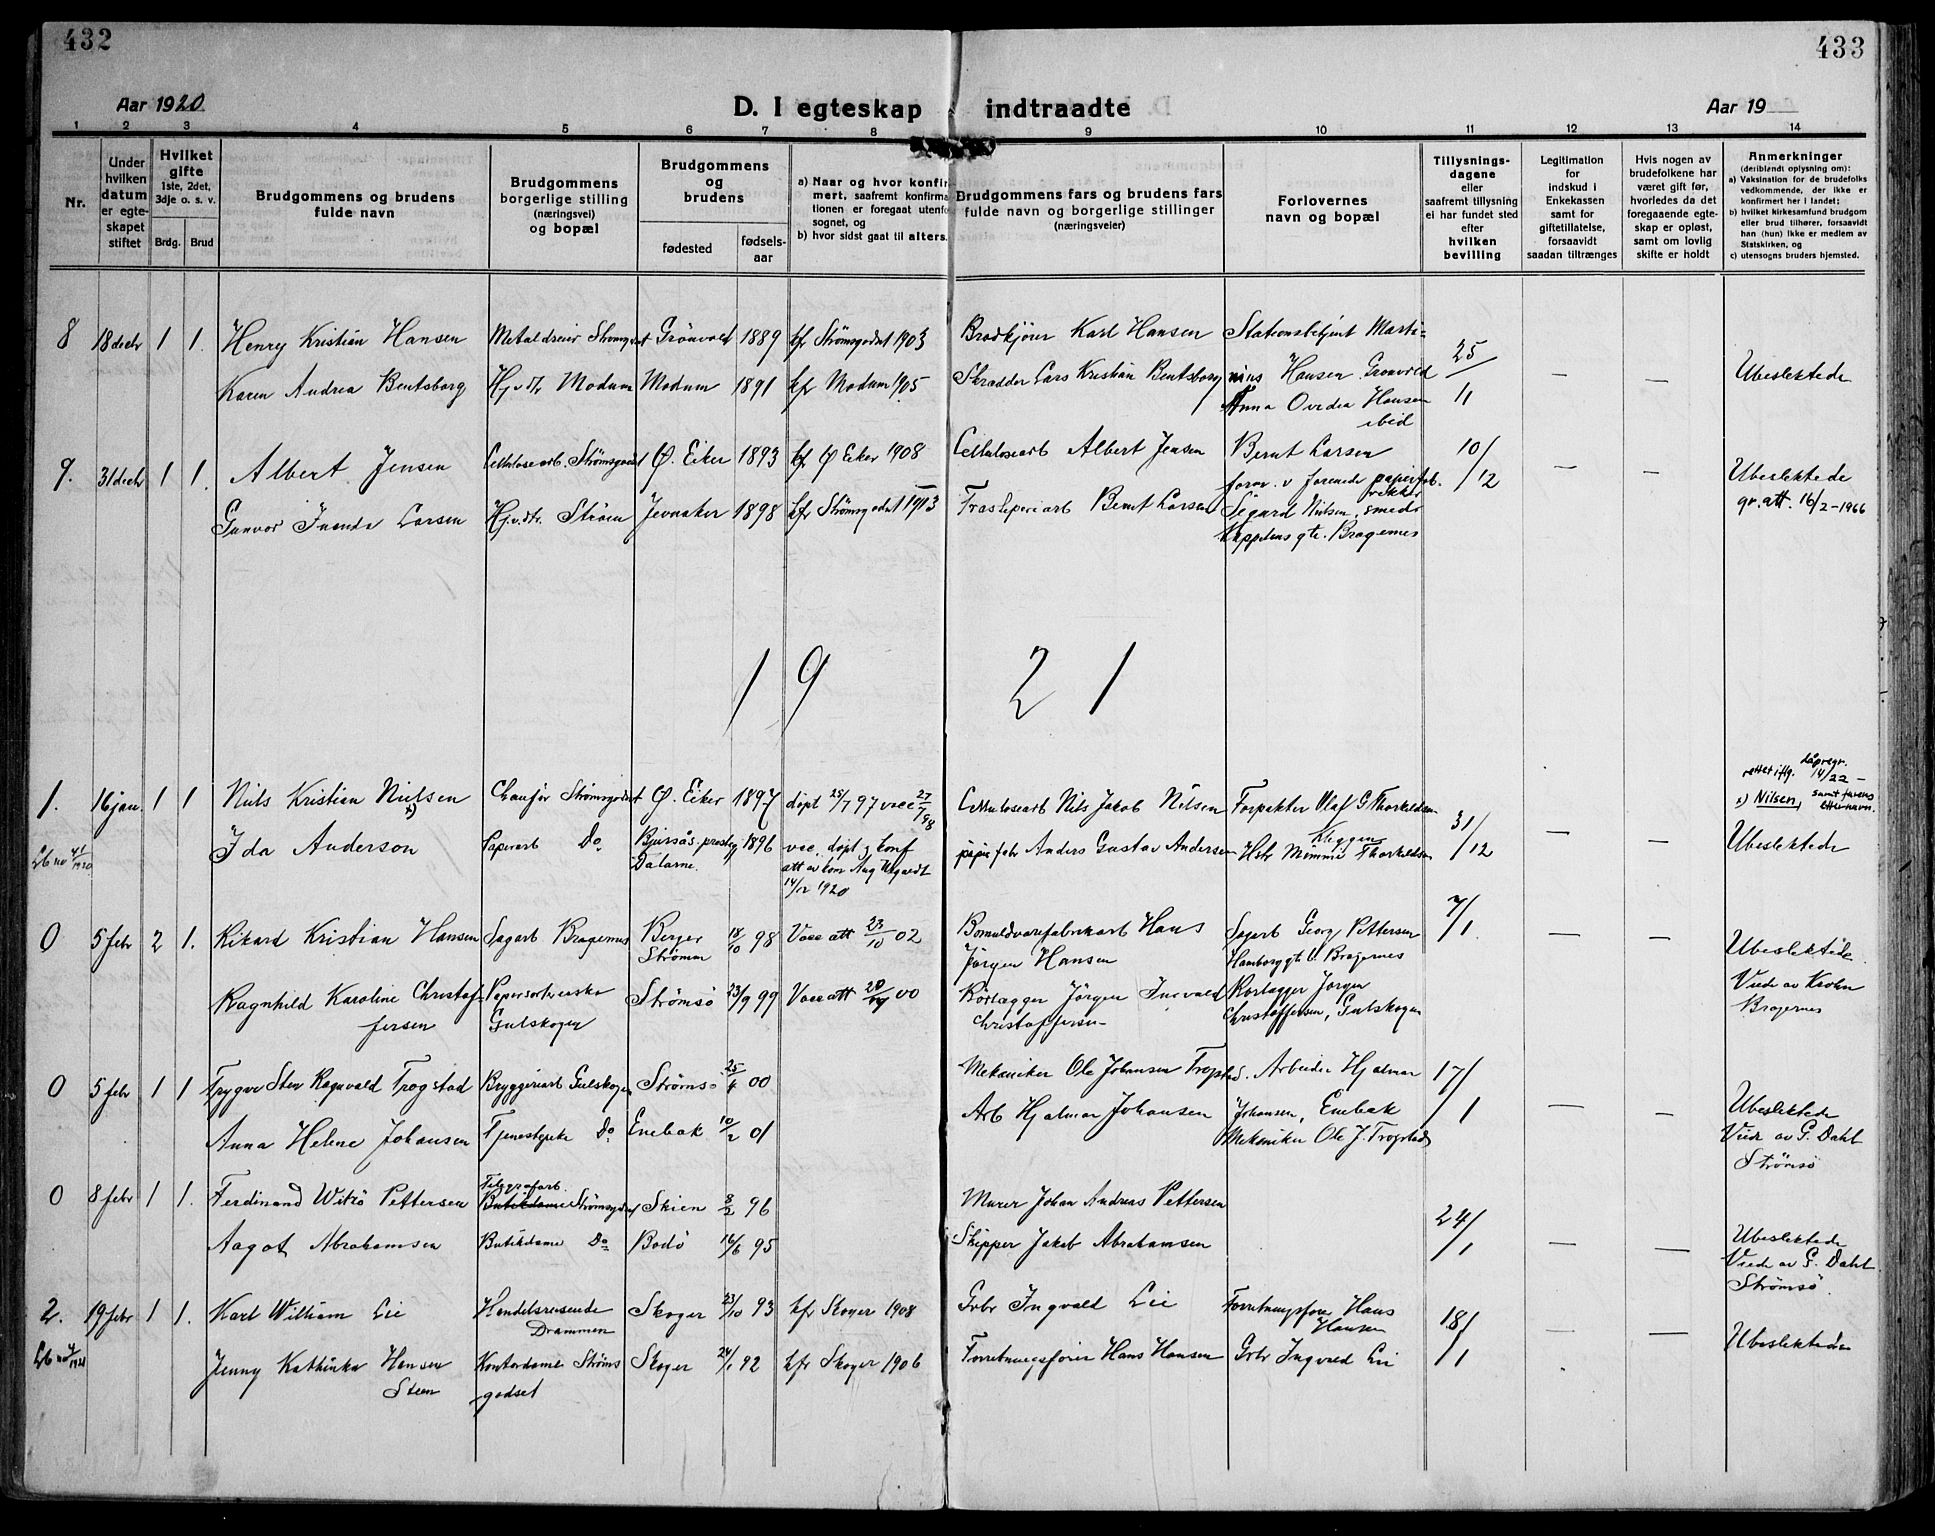 432
433
Aar 1920
D. I egteskap indtraadte
Aar 19
1 2 3 4 5 6 7 8 9 10 11 12 13 14
Nr.
Under hvilken datum er egteskapet stiftet
Hvilket gifte 1ste, 2det, 3dje o. s. v.
Brdg. Brud
Brudgommens og brudens fulde navn
Brudgommens borgerlige stilling (næringsvei) og bopæl
Brudgommens og brudens
fødested
fødsels-aar
a) Naar og hvor konfirmert, saafremt konfirmationen er foregaat utenfor sognet, og
b) hvor sidst gaat til alters.
Brudgommens fars og brudens fars fulde navn og borgerlige stillinger (næringsveier)
Forlovernes navn og bopæl
Tillysningsdagene eller saafremt tillysning ei har fundet sted efter hvilken bevilling
Legitimation for indskud i Enkekassen samt for giftetillatelse, forsaavidt saadan tiltrænges
Hvis nogen av brudefolkene har været gift før, hvorledes da det foregaaende egteskap er opløst, samt om lovlig skifte er holdt
Anmerkninger (deriblandt oplysning om):
a) Vaksination for de brudefolks vedkommende, der ikke er konfirmert her i landet;
b) hvilket kirkesamfund brudgom eller brud tilhører, forsaavidt han (hun) ikke er medlem av Statskirken, og
c) utensogns bruders hjemsted.
8 18 decbr 1 1. Henry Kristian Hansen Metaldreier Strømsgodset Grönvold 1889 kfr Strømsgodset 1903 Brødkjører Karl Hansen Stationsbetjent Marti-
Karen Andrea Bentsborg Hj.v.dtr Modum Modum 1891 kfr Modum 1905 Skrædder Lars Kristian Bentsborg nius Hansen Grønvold 25/11 — — Ubeslektede
Anna Ovedia Hansen
ibid
9. 31 decbr 1 1. Albert Jensen Cellulosearb. Strømsgodset Ø. Eiker 1893 kfr Ø Eiker 1908 Cellulosearb Albert Jensen Bernt Larsen 10/12 — — Ubeslektede
form. v forenede papirfabrikker gr. att. 16/2-1966
Gunvor Larsen Hj.v.dtr. Strøm Jevnaker 1898 kfr Strømsgodset 1913 Træsliperiarb Bernt Larsen Sigurd Nielsen, smed
gte. Bragernes
19 21
1. 16 jan. 1 1 Nils Kristian Nielsen Chaufør Strømsgodset Ø. Eiker 1897 døpt 25/7 97 vacc 27/7 98 Cellulosearb Nils Jakob Nilsen Forpakter Olaf G Thorkildsen 31/12 — — rettet iflg. dåpregr. 14/22 –
x) Nilsen, samt farens etternavn.
Kleggen
Ida Anderson Papirarb Do Bjursås prestegj 1896 vac. døpt & konf papirfabr Anders Gustav Andersen Hstr Mimmi Thorkildsen Ubeslektede
Dalarne.
14/12 1920
0 5 febr 2 1. Rikard Kristian Hansen Sagarb Bragernes Berger 18/10 98 Vacc att 23/10 02 Bomuldvarefabrikarb Hans Sagarb Georg Pettersen 7/1 — — Ubeslektede
Strømm Jørgen Hansen Hamborggt Bragernes
Ragnhild Karoline Christof- Papersorterske Strømsø 23/9 99 Vacc att 00 Rörlægger Jörgen Ingvald Rörlægger Jørgen Viede av Krohn
fersen Gulskogen Christoffersen Christoffersen, Gulskogen Bragernes
0 5 febr 1 1 Trygve Sten Ragnvald Trogstad Bryggeriarb Gulskogen Strømsø 25/4 00 Mekaniker Ole Johansen Trogstad. Arbeider Hjalmar 17/1 — — Ubeslektede
Anna Helene Johansen Tjenestepike Do Enebak 10/2 01 Arb Hjalmar Johansen Johansen, Enebak Viede av G. Dahl
Mekaniker Ole J. Trogstad Strömsö
0 8 febr 1 1. Ferdinand Pettersen Telegrafarb. Butikdame Strømsgodset Skien 8/2 96 Murer Johan Andreas Pettersen 24/1 — —
Aagot Abrahamsen Butikdame Do Bodö 16/6 95 Skipper Jakob Abrahamsen Ubeslektede
Viede av G. Dahl
Strömsö
2. 19 febr 1 1. Karl William Lie Handelsreisende Skoger 23/10 93 kfr Skoger 1908 Grbr Ingvald Lie Forretningsfører Hans 18/1 — —
Drammen Hansen
Jenny Kathinka Hansen Kontordame Strøms Skoger 24/1 92 kfr Skoger 1906 Forretningsfører Hans Hansen Grbr Ingvald Lie Ubeslektede
Steen godset